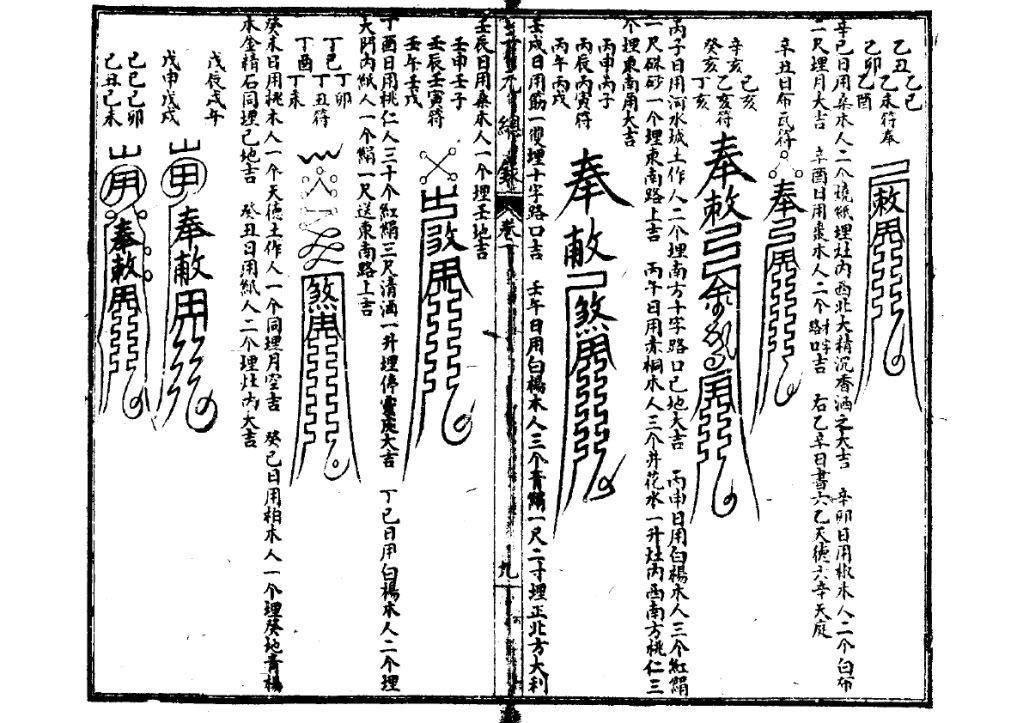 乙丑乙巳
乙卯乙未符奉
乙酉
敕
辛巳日用桑木人二个燒紙埋灶丙西北大精沉香酒之大吉　辛卯日用椒木人二个白布
二尺埋月大吉　辛酉日用棗木人二个路口吉　右乙辛日書六乙天德六辛天庭
辛丑日布瓦符
奉
辛亥己亥
癸亥乙亥符
丁亥
奉敕
丙子日用河水城土作人二个埋南方十字路口巳地大吉　丙申日用白楊木人三个紅絹
一尺硃砂一个埋東南路上吉　丙午日用赤桐木人三个井花水一升灶丙西南方桃仁三
个埋東南角大吉
丙申丙子
丙辰丙寅符
丙午丙戌
奉敕
煞
壬戌日用筯一雙埋十字路口吉　壬午日用白楊木人三个青絹一尺二寸埋正北方大利
元總錄
卷
九
壬辰日用桑木人一个埋壬地吉
壬申壬子
壬辰壬寅符
壬午壬戌
丁酉日用桃仁人三十个紅絹三尺清酒一升埋停靈處大吉　丁巳日用白楊木人二个埋
大門內紙人一个絹一尺送東南路上吉
丁巳丁卯
丁丑符
丁酉丁未
煞
癸未日用桃木人一个天德土作人一个同埋月空吉　癸巳日用柏木人一个埋癸地青楊
木金精石同埋巳地吉　癸丑日用紙人二个埋灶丙大吉
戊辰戊午
戊申戊戌
奉敕
己巳己卯
己丑己未
奉敕